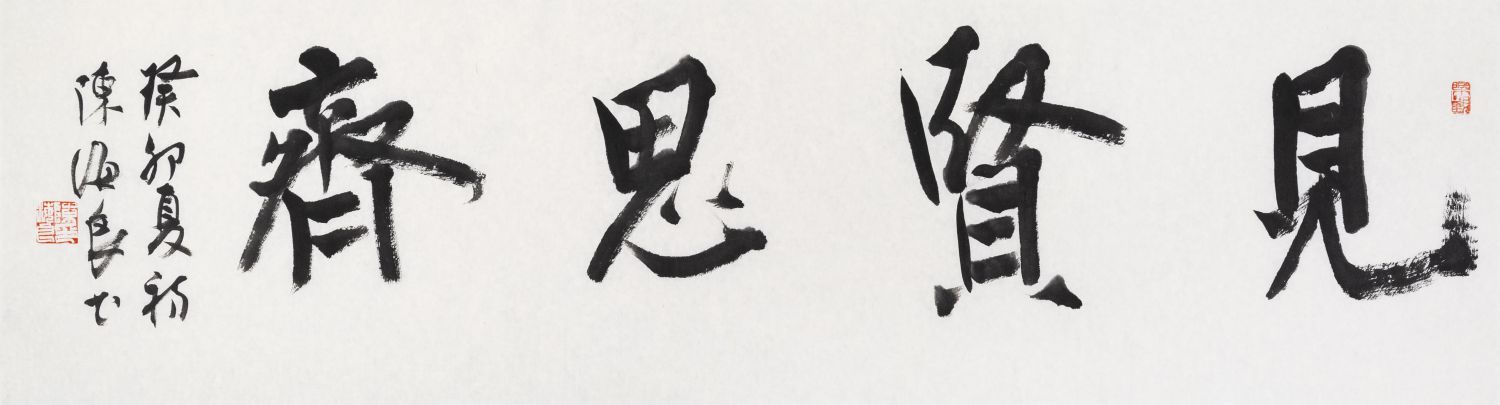 見賢思齊
癸卯夏初
陳海良书